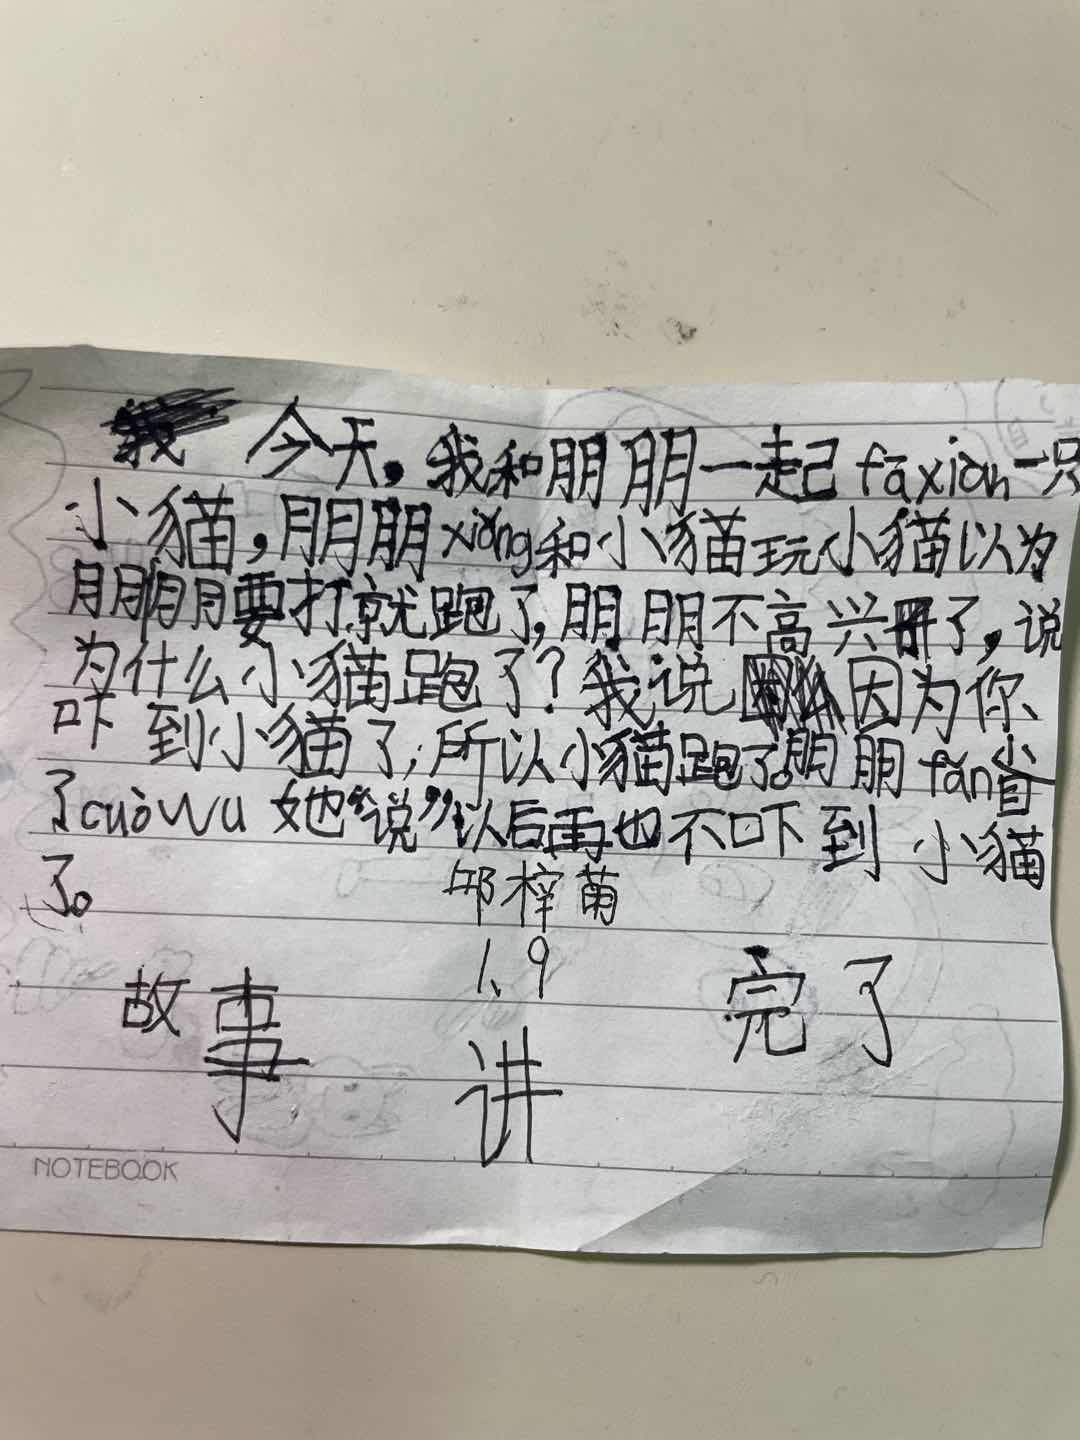 今天,我和朋朋一起fāxiàn一只
小猫,朋朋xiǎng和小猫玩小猫以为
朋朋要打就跑了,朋朋不高兴了,说
为什么小猫跑了?我说因为你
吓到小猫了,所以小猫跑了。朋朋fǎn省
了cuòwu她“说”以后再也不吓到小猫
了。
邱梓萌
1.9
故事讲完了
NOTEBOOK